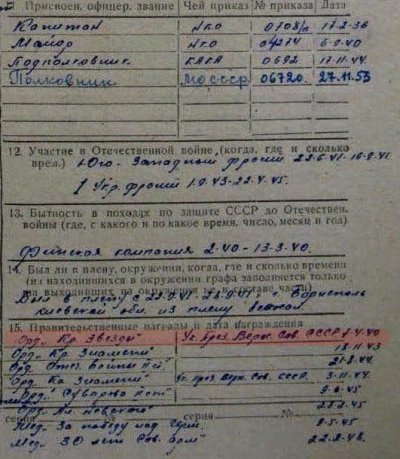 Присвоен. офицер. звание Чей приказ № приказа Дата
Капитан НКО 0108/п 17.2.36
Майор НКО 04274 6.9.40
Подполковник 0692 17.11.44
Полковник МО СССР 06720. 27.11.53
12. Участие в Отечественной войне (когда, где и сколько
врем.) Юго-Западный фронт 22.6.41-
1 Укр. фронт 1.9.43-22.4.45.
13. Бытность в походах по защите СССР до Отечествен.
войны (где, с какого и по какое время, число, месяц и год)
Финская кампания 2.40-13.3.40.
14. Был ли в плену, окружении, когда, где и сколько времени
(из находившихся в окружении графа заполняется только
на выходивших из окружения не в составе части)
Был в плену с г. Борисполь
Киевской обл. из плену бежал.
15. Правительственные награды и дата награждения
Орд. „Кр. Звезды" Ук. през. Верх. Сов. СССР 7.4.40
Орд. „Кр. Знамени" 18.11.43
Орд. Отеч. войны 21.2.44.
Орд. „Кр. Знамени" Ук. през. Верх. Сов. СССР. 3.11.44.
Орд. „Суворова 2 ст" 9.6.45
Орд. Ал. Невского
серия серия №
Мед. За победу над Герм. 9.5.45
Мед. „30 лет Сов. арм" 22.2.48.